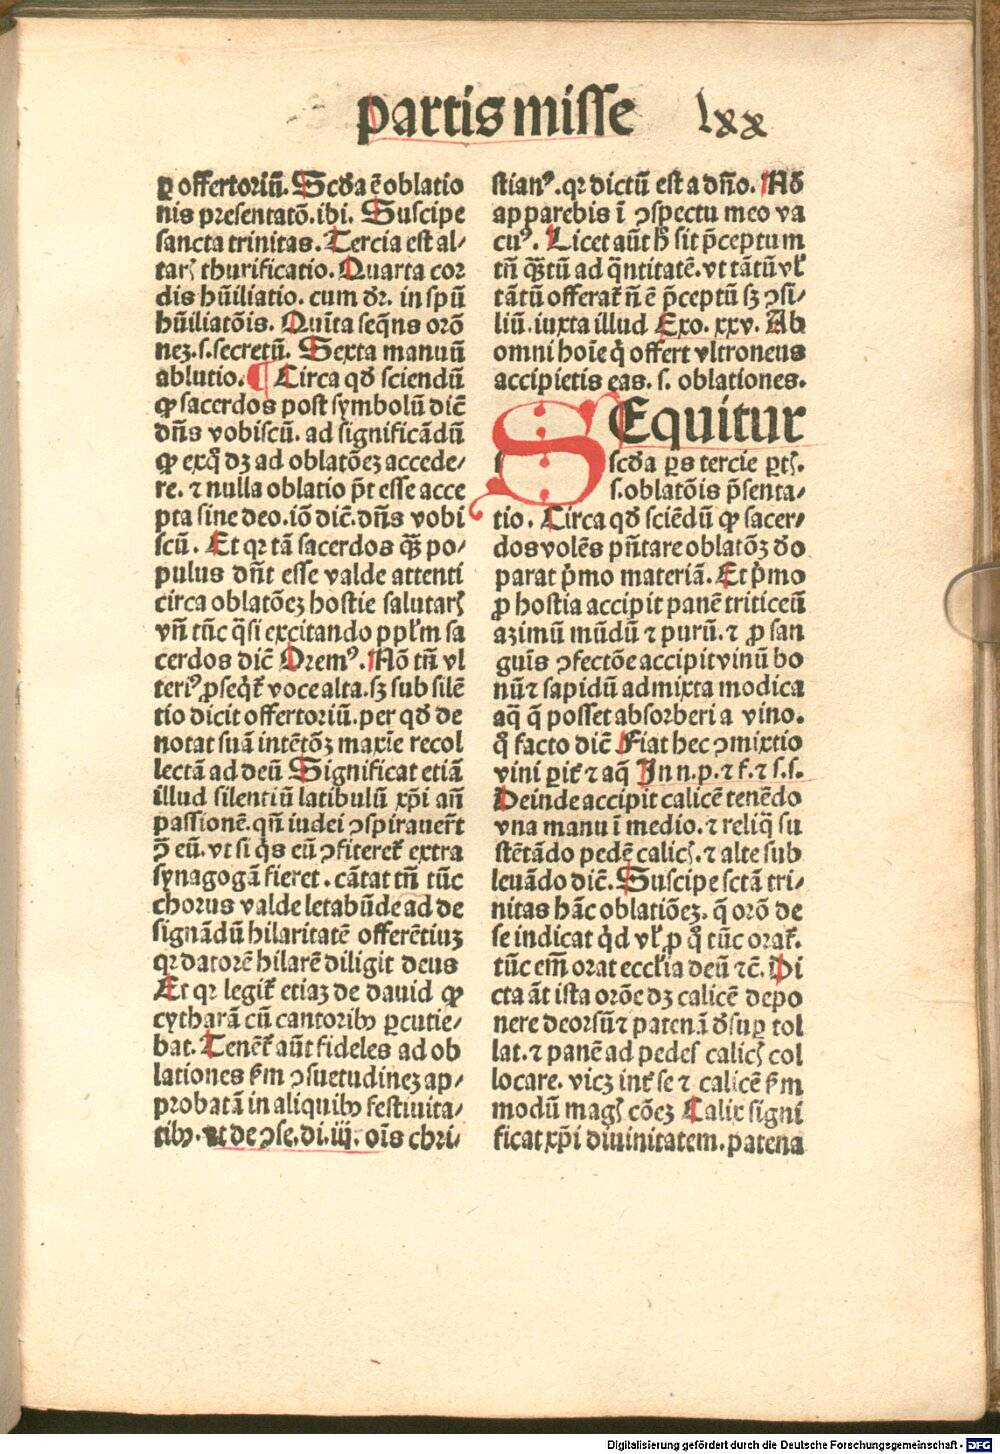 partis misse lxx
ꝑ offertoriū. Scḋa ē oblatio
nis presentatō. ibi. Suscipe
sancta trinitas. Tercia est al⸗
tarꝭ thurificatio. Quarta cor
dis hūiliatio. cum dr̄. in spū
hūiliatōis. Quīta seq̄ns orō
neꝫ. s. secretū. Sexta manuū
ablutio. ¶ Circa qḋ sciendū
ꝙ sacerdos post symbolū dic̄
dn̄s vobiscū. ad significādū
ꝙ exq̇̄ dꝫ ad oblatōeꝫ accede⸗
re. ⁊ nulla oblatio pōt esse acce
pta sine deo. iō dic̄. dn̄s vobi
scū. Et qꝛ tā sacerdos qꝫ̄ po⸗
pulus dn̄t esse valde attenti
circa oblatōeꝫ hostie salutarꝭ
vn̄ tūc q̄si excitando ppl̄m sa
cerdos dic̄ Oremꝰ. Nō tn̄ vl
teriꝰ ꝓseqt̄ voce alta. sꝫ sub silē
tio dicit offertoriū. per qḋ de
notat suā intētōꝫ maxīe recol
lectā ad deū Significat etiā
illud silentiū latibulū xp̄i an̄
passionē. qn̄ iudei ꝯspirauer̄t
ꝯ̄ eū. vt si q̇s eū ꝯfiteret̄ extra
synagogā fieret. cātat tn̄ tūc
chorus valde letabūde ad de
signādū hilaritatē offerētiuꝫ
qꝛ datorē hilarē diligit deus
Et qꝛ legit̄ etiaꝫ de dauid ꝙ
cytharā cū cantoribꝰ ꝑcutie⸗
bat. Tenēt̄ aūt fideles ad ob
lationes ẜm ꝯsuetudineꝫ ap⸗
probatā in aliquibꝰ festiuita⸗
tibꝰ. vt de ꝯse. di. iij. oīs chri⸗
stianꝰ. qꝛ dictū est a dn̄o. Nō
apparebis ī ꝯspectu meo va
cuꝰ. Licet aūt h̄ sit p̄ceptum
tn̄ qꝫ̄tū ad q̄ntitatē. vt tātū vl̄
tātū offerat̄ n̄ ē p̄ceptū sꝫ ꝯsi⸗
liū. iuxta illud Exo. xxv. Ab
omni hoīe q̇ offert vltroneus
accipietis eas. s. oblationes.
SEquitur
scḋa ꝑs tercie ꝑtꝭ.
s. oblatōis p̄senta⸗
tio. Circa qḋ sciēdū ꝙ sacer⸗
dos volēs pn̄tare oblatōꝫ do
parat ṗmo materiā. Et ṗmo
ꝓ hostia accipit panē triticeū
azimū mūdū ⁊ purū. ⁊ ꝓ san
guīs ꝯfectōe accipit vinū bo
nū ⁊ sapidū admixta modica
aq̄ q̄ posset absorberi a vino.
q̇̄ facto dic̄ Fiat hec ꝯmixtio
vini ꝑit̄ ⁊ aq̄ In n. p. ⁊ f. ⁊ s. s.
Deinde accipit calicē tenēdo
vna manu ī medio. ⁊ reliq̄ su
stētādo pedē calicꝭ. ⁊ alte sub
leuādo dic̄. Suscipe sctā tri⸗
nitas hāc oblatiōeꝫ. q̄ orō de
se indicat q̇d vl̄ ꝓ q̇ tūc orat̄.
tūc em̄ orat eccl̄ia deū ⁊c̄. Di
cta āt ista orōe dꝫ calicē depo
nere deorsū ⁊ patenā dsuꝑ tol
lat. ⁊ panē ad pedes calicꝭ col
locare. vicꝫ int̄ se ⁊ calicē ẜm
modū magꝭ cōeꝫ Calix signi
ficat xp̄i diuinitatem. patena
Digitalisierung gefördert durch die Deutsche Forschungsgemeinschaft - DFG